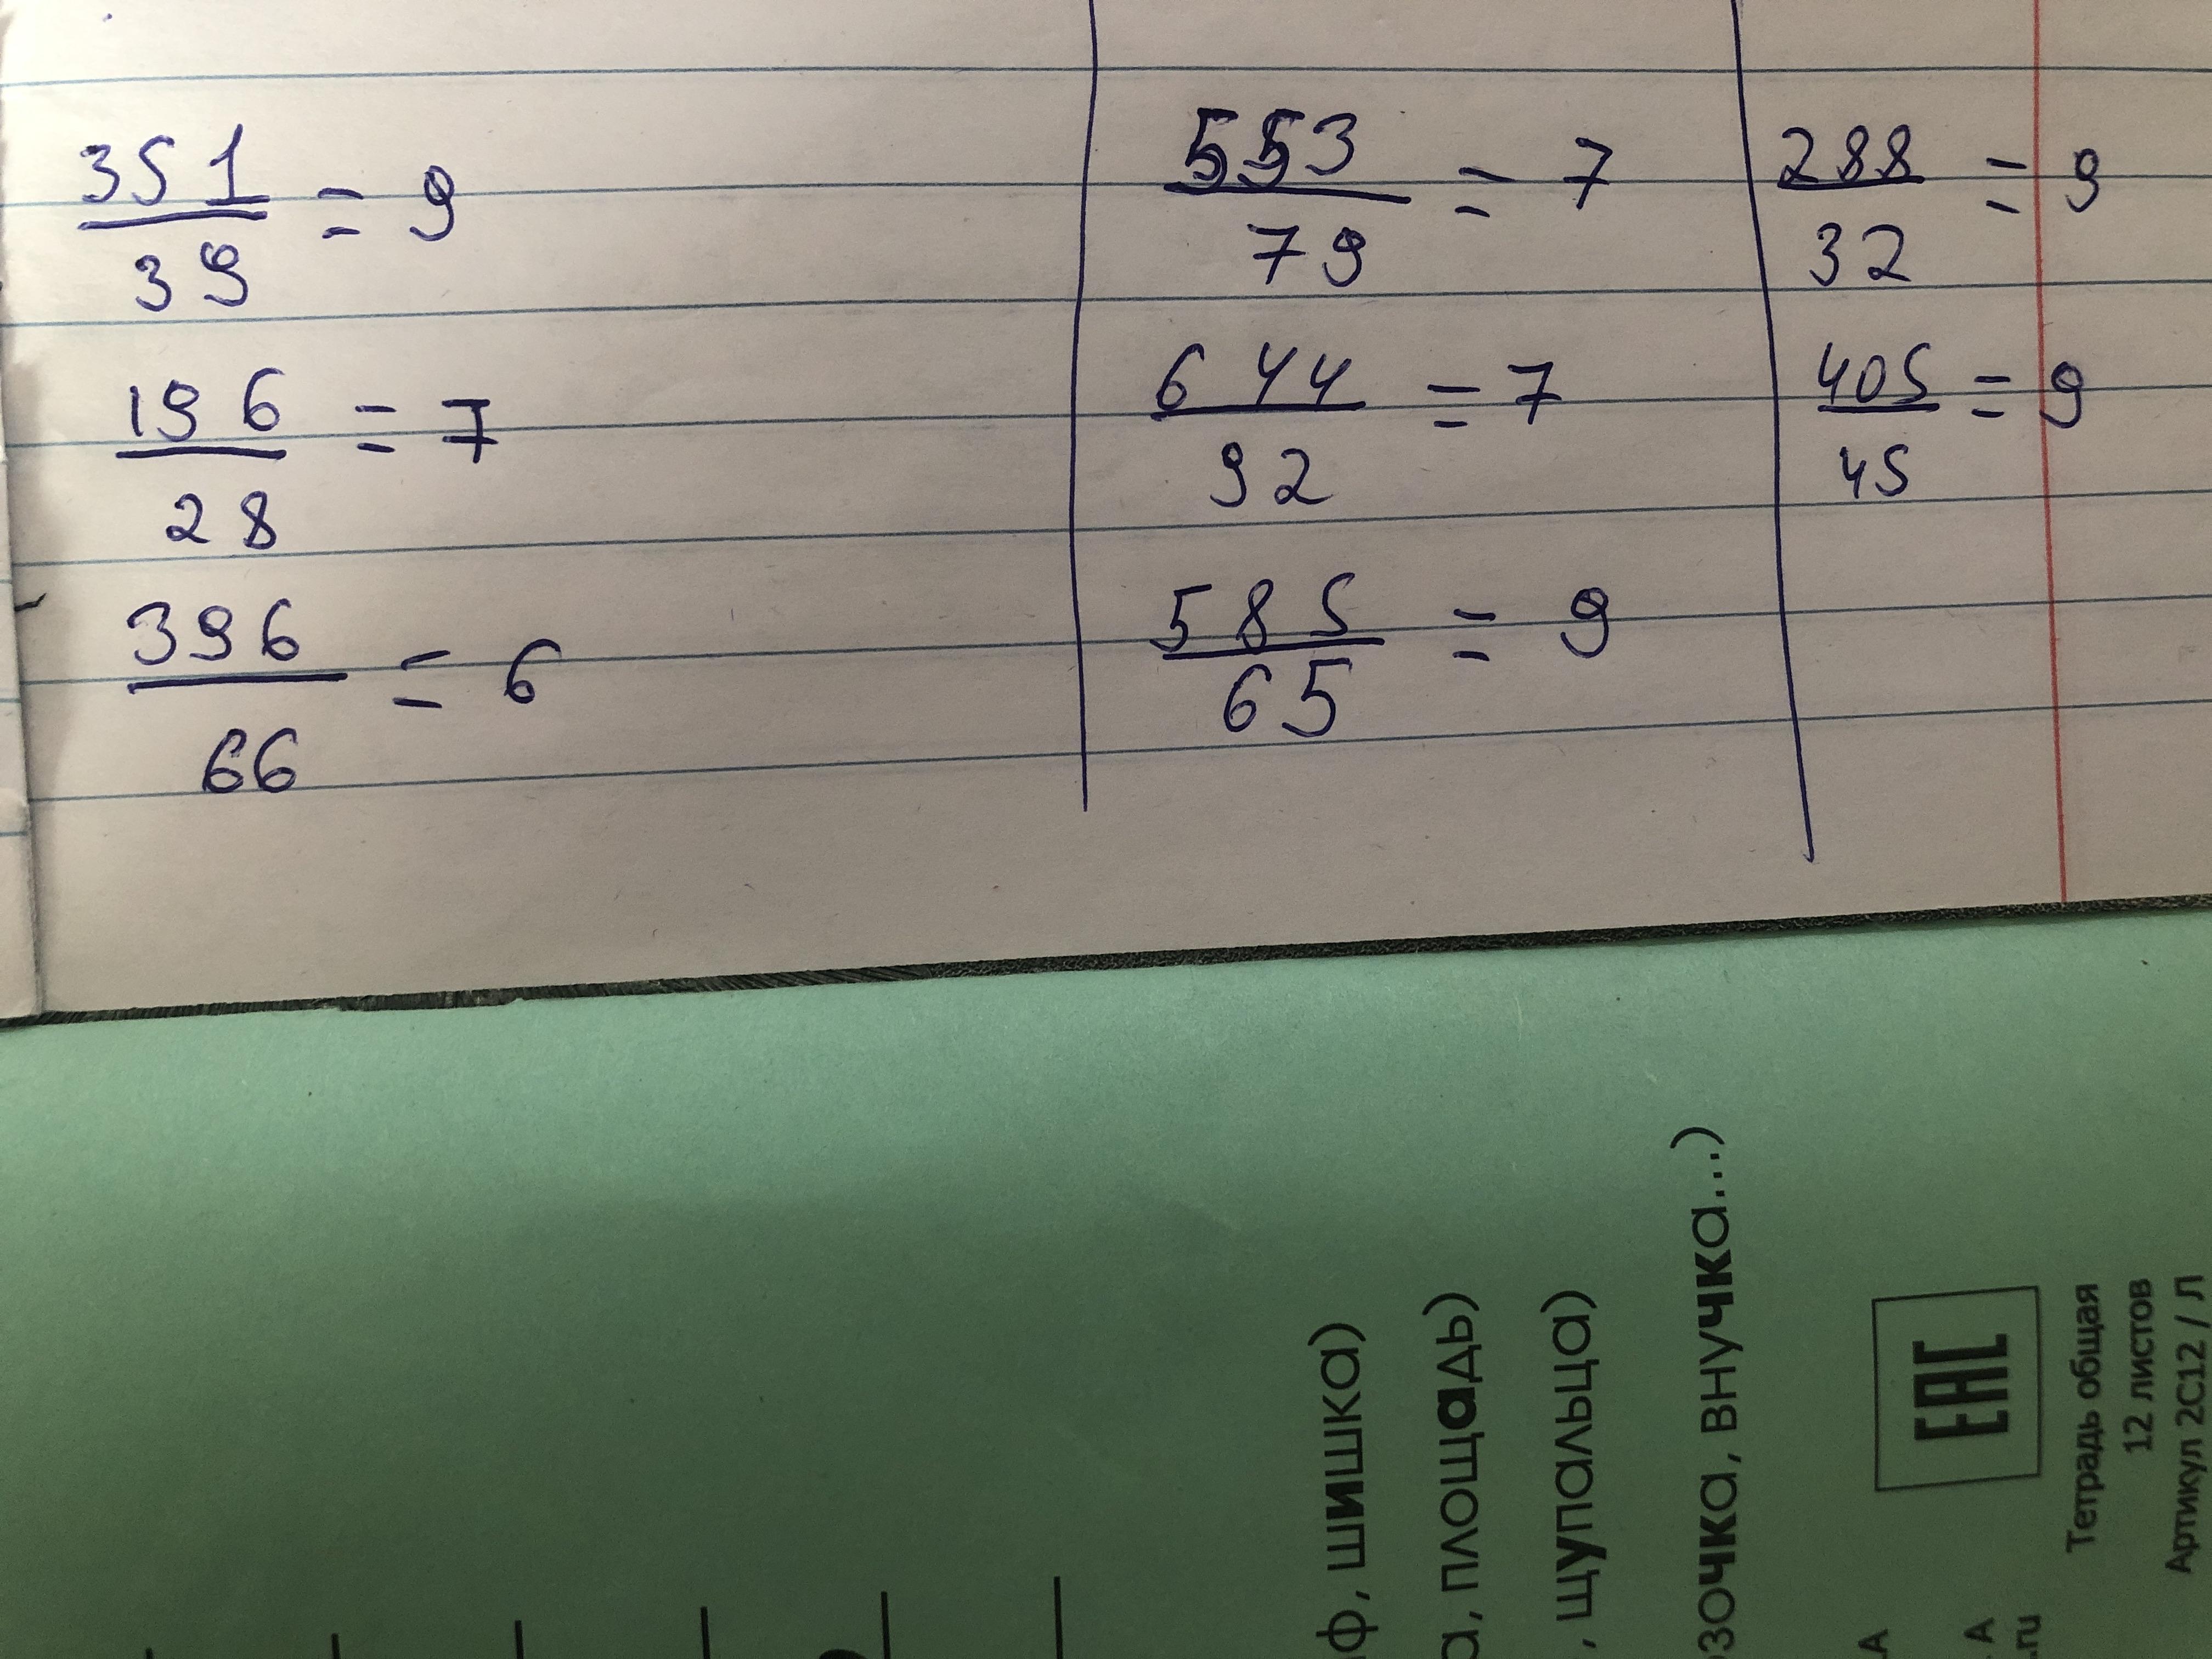 351/39 = 9
196/28 = 7
396/66 = 6
553/79 = 7
644/92 = 7
585/65 = 9
288/32 = 9
405/45 = 9
шишка)
площадь)
щупальца)
внучка...)
EAC
Тетрадь общая
12 листов
Артикул 2С12 / Л